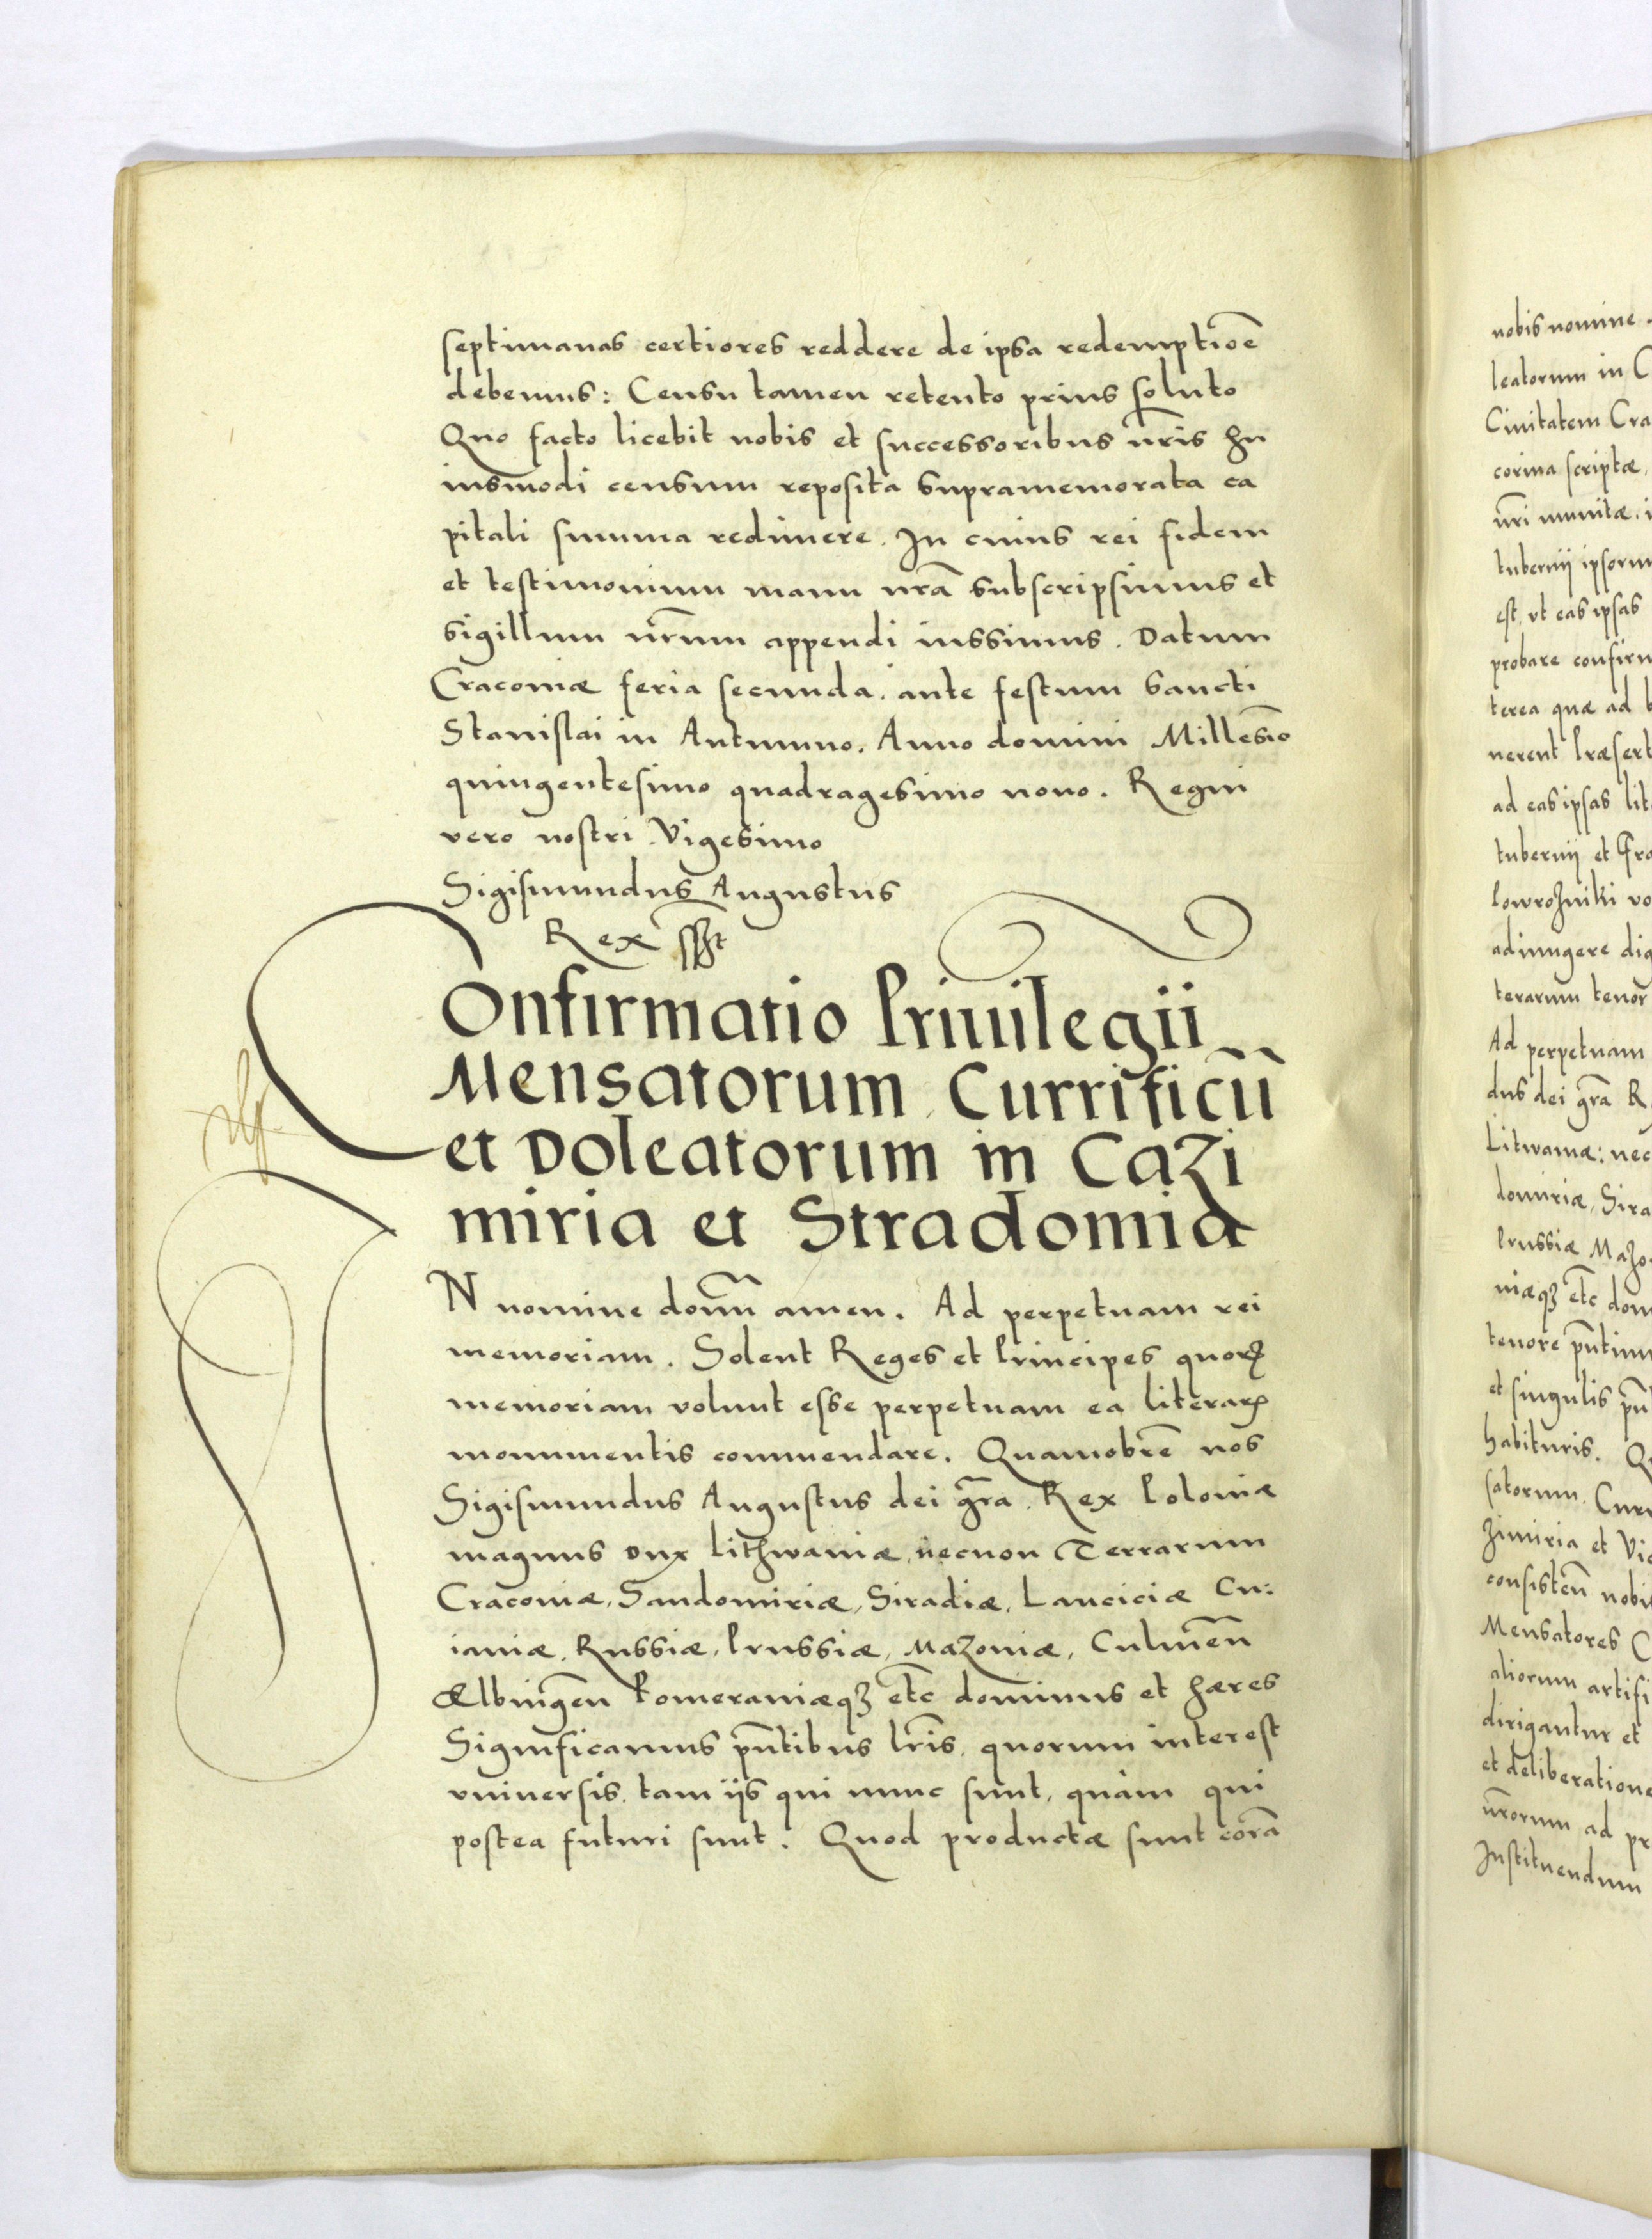 septimanas certiores reddere de ipsa redemptiōe
debemus: Censu tamen retento prius soluto
Quo facto licebit nobis et successoribus nr̄is hu
iusmodi censum reposita supramemorata ca
pitali summa redimere. In cuius rei fidem
et testimonium manu nrā subscripsimus et
sigillum nr̄um appendi iussimus. Datum
Cracouiæ feria secunda. ante festum Sancti
Stanislai in Autumno. Anno domini Millesīo
quingentesimo quadragesimo nono. Regni
vero nostri Vigesimo
Sigismundus Augustus
Rex sszt
Confirmatio Priuilegii
Mensatorum Currificū
et Doleatorum in Cazi
miria et Stradomia
IN nomine domī amen. Ad perpetuam rei
memoriam. Solent Reges et Principes quorꝝ
memoriam volunt esse perpetuam ea literarꝝ
monumentis commendare. Quamobrē nos
Sigismundus Augustus dei gr̄a Rex Poloniæ
magnus Dux Lithwaniæ, necnon Terrarum
Cracouiæ, Sandomiriæ, Siradiæ, Lanciciæ Cu:
iauiæ, Russiæ, Prussiæ, Mazouiæ, Culmēn
Ælbingēn Pomeraniæqꝫ etc̄ dominus et hæres
Significamus pn̄tibus lr̄is, quorum interest
vniuersis, tam ijs qui nunc sunt, quàm qui
postea futuri sunt. Quod productæ sunt corā
nobis nomine
leatorum in C
Ciuitatem Cra
scriptæ,
nr̄i munitæ, i
tubernij ipsorum
est, vt eas ipsas
probare confirm
terea quæ ad
nerent Præsert
ad eas ipsas lit
tubernij et Fra
Powrozniki vo
adiungere dig
terarum tenor
Ad perpetuam
dus dei gr̄a R
Litwaniæ: nec
domiriæ, Sira
Prussiæ Mazo
niæqꝫ etc̄ dom
tenore pn̄tium
et singulis pn̄
habituris. Q
satorum, Curr
zimiria et Vi
consistēn nobi
Mensatores C
aliorum artifi
dirigantur et
et deliberatione
nr̄orum ad pr
Instituendum